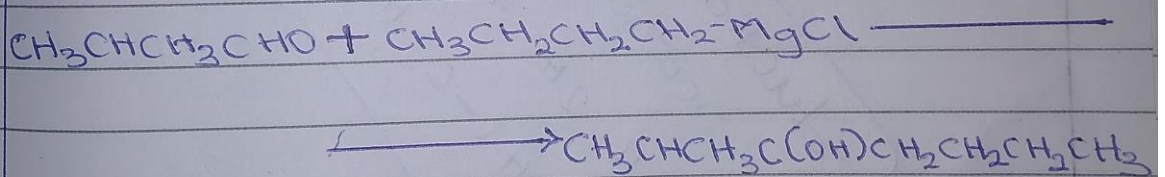 CH₃CHCH₃CHO + CH₃CH₂CH₂CH₂-MgCl ⟶
⟶ CH₃CHCH₃C(OH)CH₂CH₂CH₂CH₃